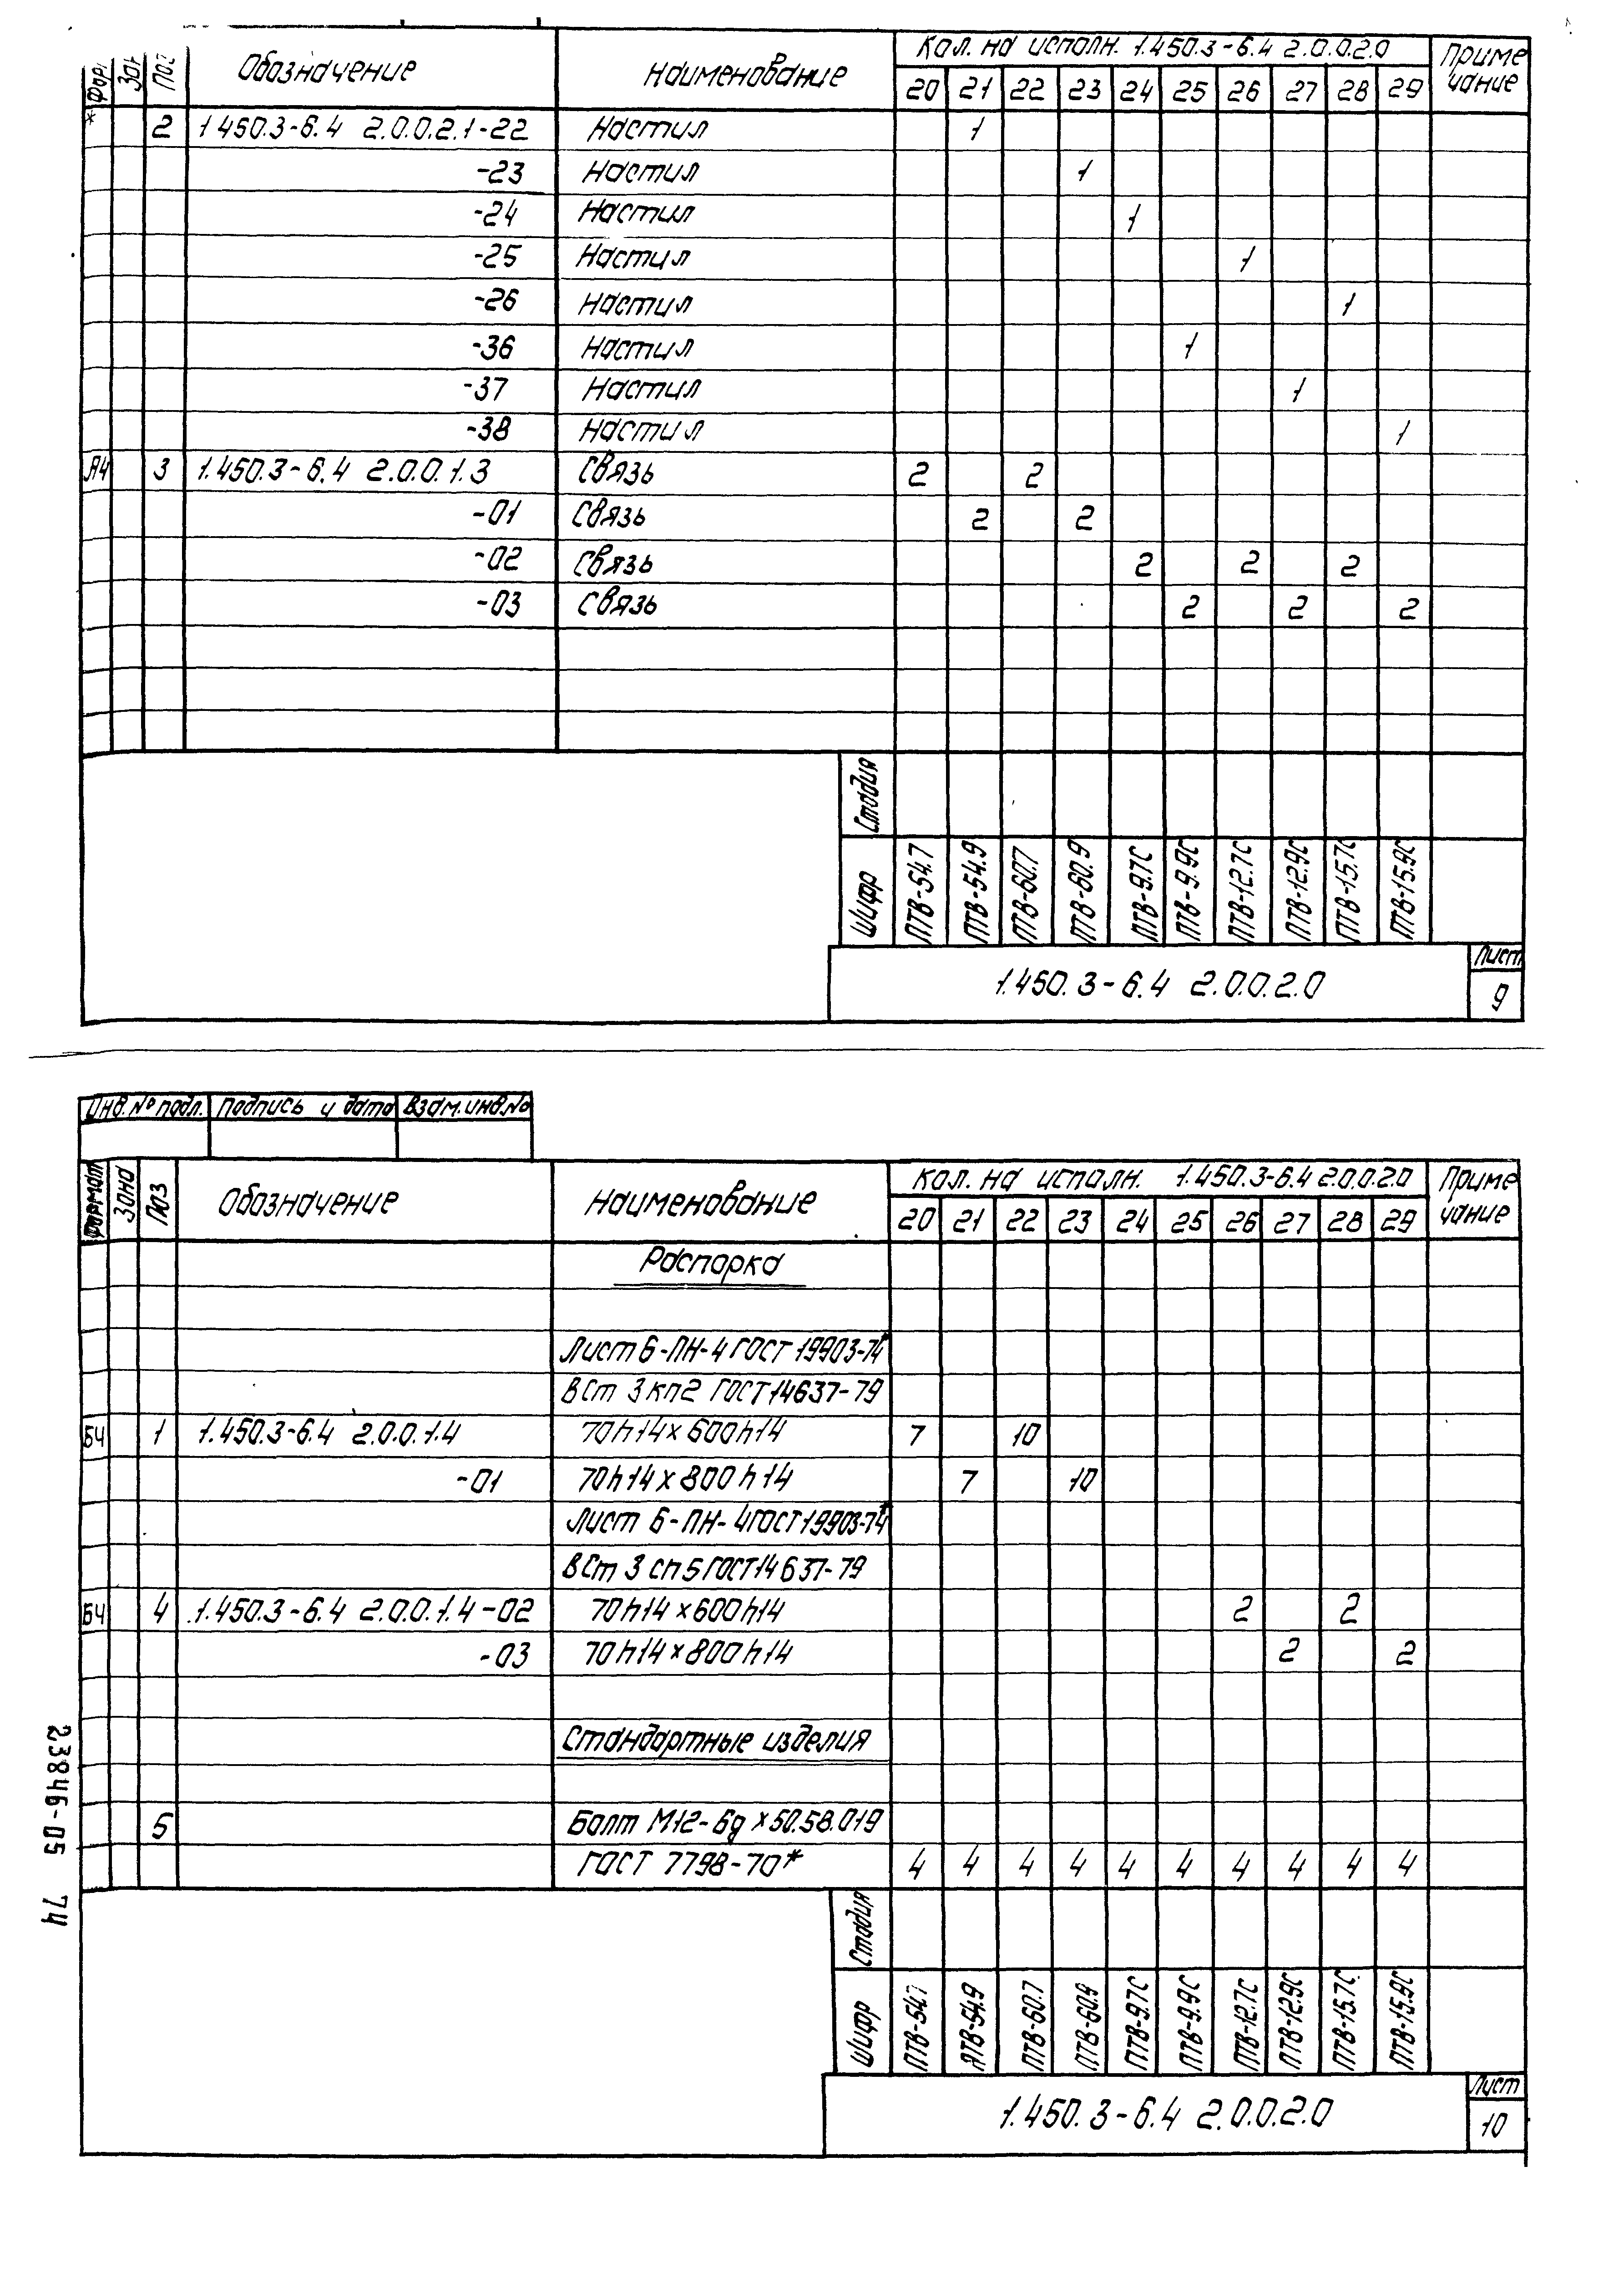 Кол. на исполн. 1.450.3-6.4 2.0.0.2.0
Поз Обозначение Наименование 20 21 22 23 24 25 26 27 28 29 Приме
чание
* 2 1.450.3-6.4 2.0.0.2.1-22 Настил 1
-23 Настил 1
-24 Настил 1
-25 Настил 1
-26 Настил 1
-36 Настил 1
-37 Настил 1
-38 Настил 1
А4 3 1.450.3-6.4 2.0.0.1.3 Связь 2 2
-01 Связь 2 2
-02 Связь 2 2 2
-03 Связь 2 2 2
Стадия
Шифр ПТВ-54.7 ПТВ-54.9 ПТВ-60.7 ПТВ-60.9 ПТВ-9.7С ПТВ-9.9С ПТВ-12.7С ПТВ-12.9С ПТВ-15.7С ПТВ-15.9С
1.450.3-6.4 2.0.0.2.0
Лист
9
Инв.№ подл. Подпись и дата Взам.инв.№
Кол. на исполн. 1.450.3-6.4 2.0.0.2.0
Формат Зона Поз Обозначение Наименование 20 21 22 23 24 25 26 27 28 29 Приме
чание
Распорка
Лист Б-ПН-4 ГОСТ 19903-74*
ВСт 3кп2 ГОСТ 14637-79
БЧ 1 1.450.3-6.4 2.0.0.1.4 70h14×600h14 7 10
-01 70h14×800h14 7 10
Лист Б-ПН-4 ГОСТ 19903-74*
ВСт 3 сп5 ГОСТ 14637-79
БЧ 4 1.450.3-6.4 2.0.0.1.4-02 70h14×600h14 2 2
-03 70h14×800h14 2 2
Стандартные изделия
5 Болт М12-6g×50.58.019
ГОСТ 7798-70* 4 4 4 4 4 4 4 4 4 4
Стадия
Шифр ПТВ-54.7 ПТВ-54.9 ПТВ-60.7 ПТВ-60.9 ПТВ-9.7С ПТВ-9.9С ПТВ-12.7С ПТВ-12.9С ПТВ-15.7С ПТВ-15.9С
1.450.3-6.4 2.0.0.2.0
Лист
10
23846-05 74